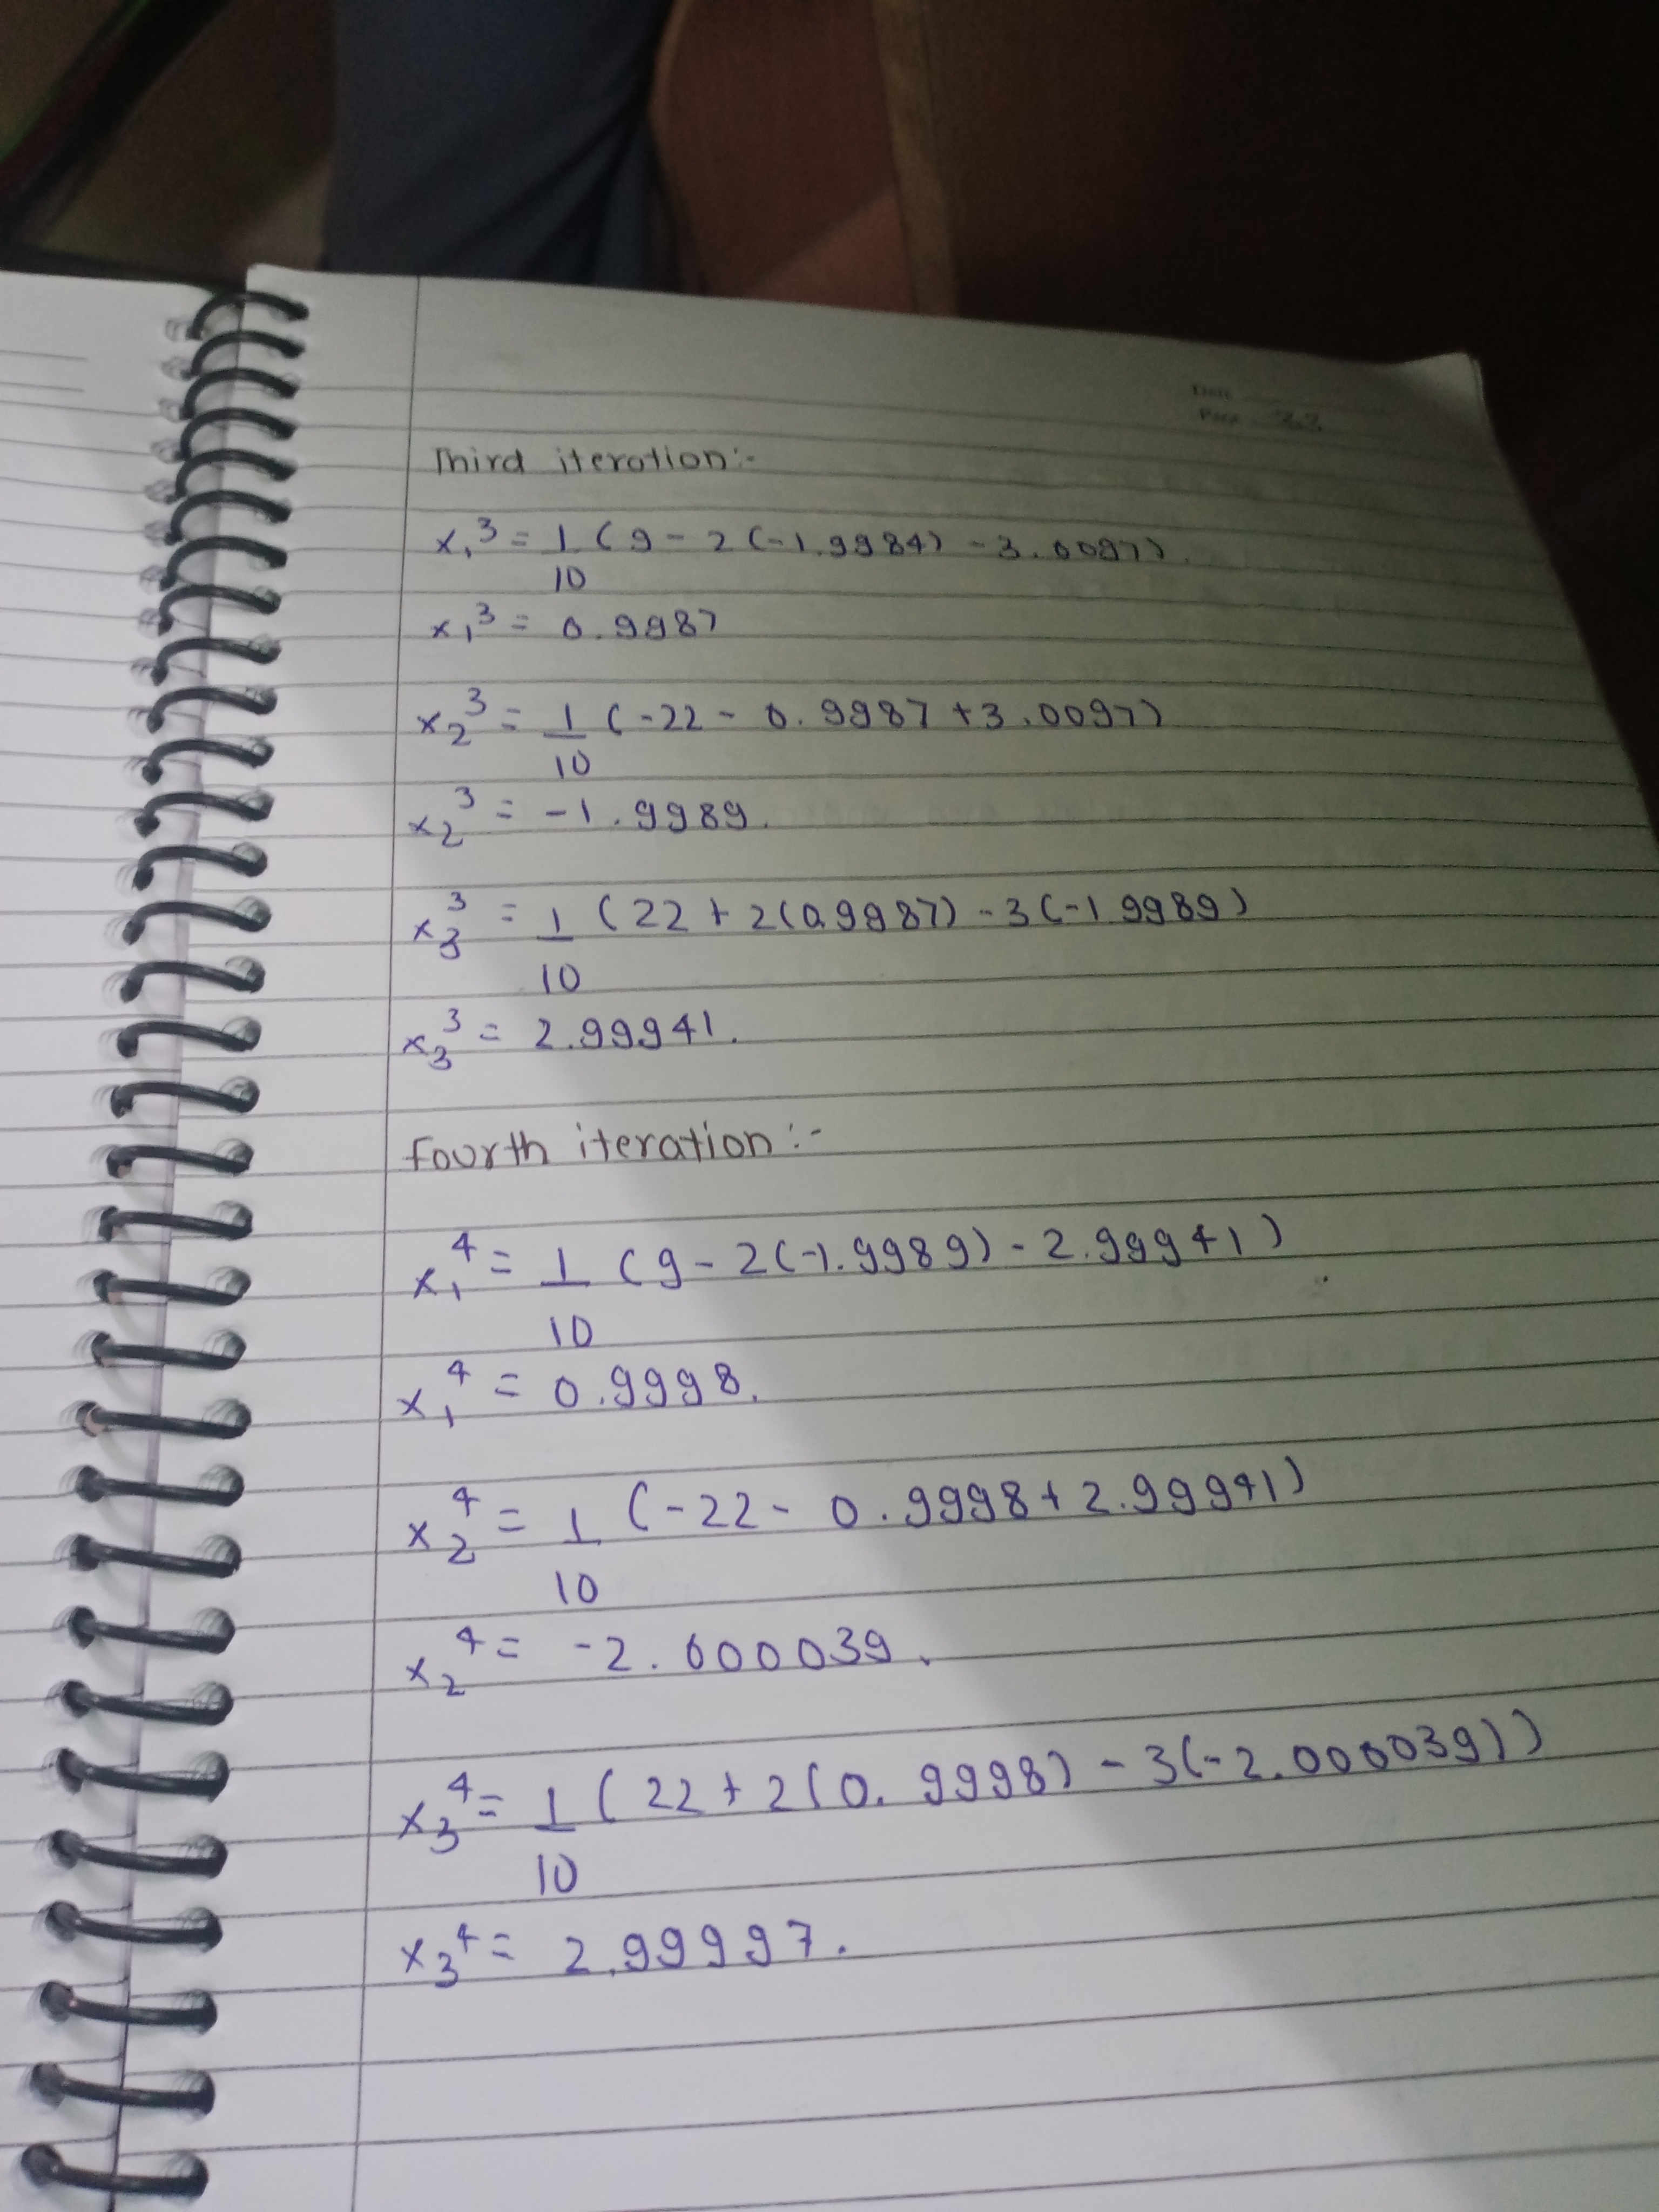 Date
Page 22
Third iteration:-
x₁³ = 1/10 (9 - 2(-1.9984) - 3.0097)
x₁³ = 0.9987
x₂³ = 1/10 (-22 - 0.9987 + 3.0097)
x₂³ = -1.9989.
x₃³ = 1/10 (22 + 2(0.9987) - 3(-1.9989)
x₃³ = 2.99941.
Fourth iteration:-
x₁⁴ = 1/10 (9 - 2(-1.9989) - 2.99941)
x₁⁴ = 0.9998.
x₂⁴ = 1/10 (-22 - 0.9998 + 2.99941)
x₂⁴ = -2.000039.
x₃⁴ = 1/10 (22 + 2(0.9998) - 3(-2.000039))
x₃⁴ = 2.99997.